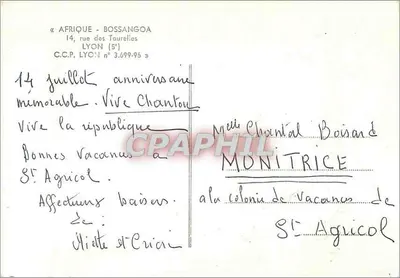 « AFRIQUE - BOSSANGOA
14, rue des Tourelles
LYON (5e)
C.C.P. LYON n° 3.699-96 »
14 juillet anniversaire
mémorable. Vive Chantou
vive la république
Bonnes vacances à
St Agricol.
Affectueux baisers
de:
CPAPHIL
Melle Chantal Boisard
MONITRICE
a la colonie de vacances de
St Agricol